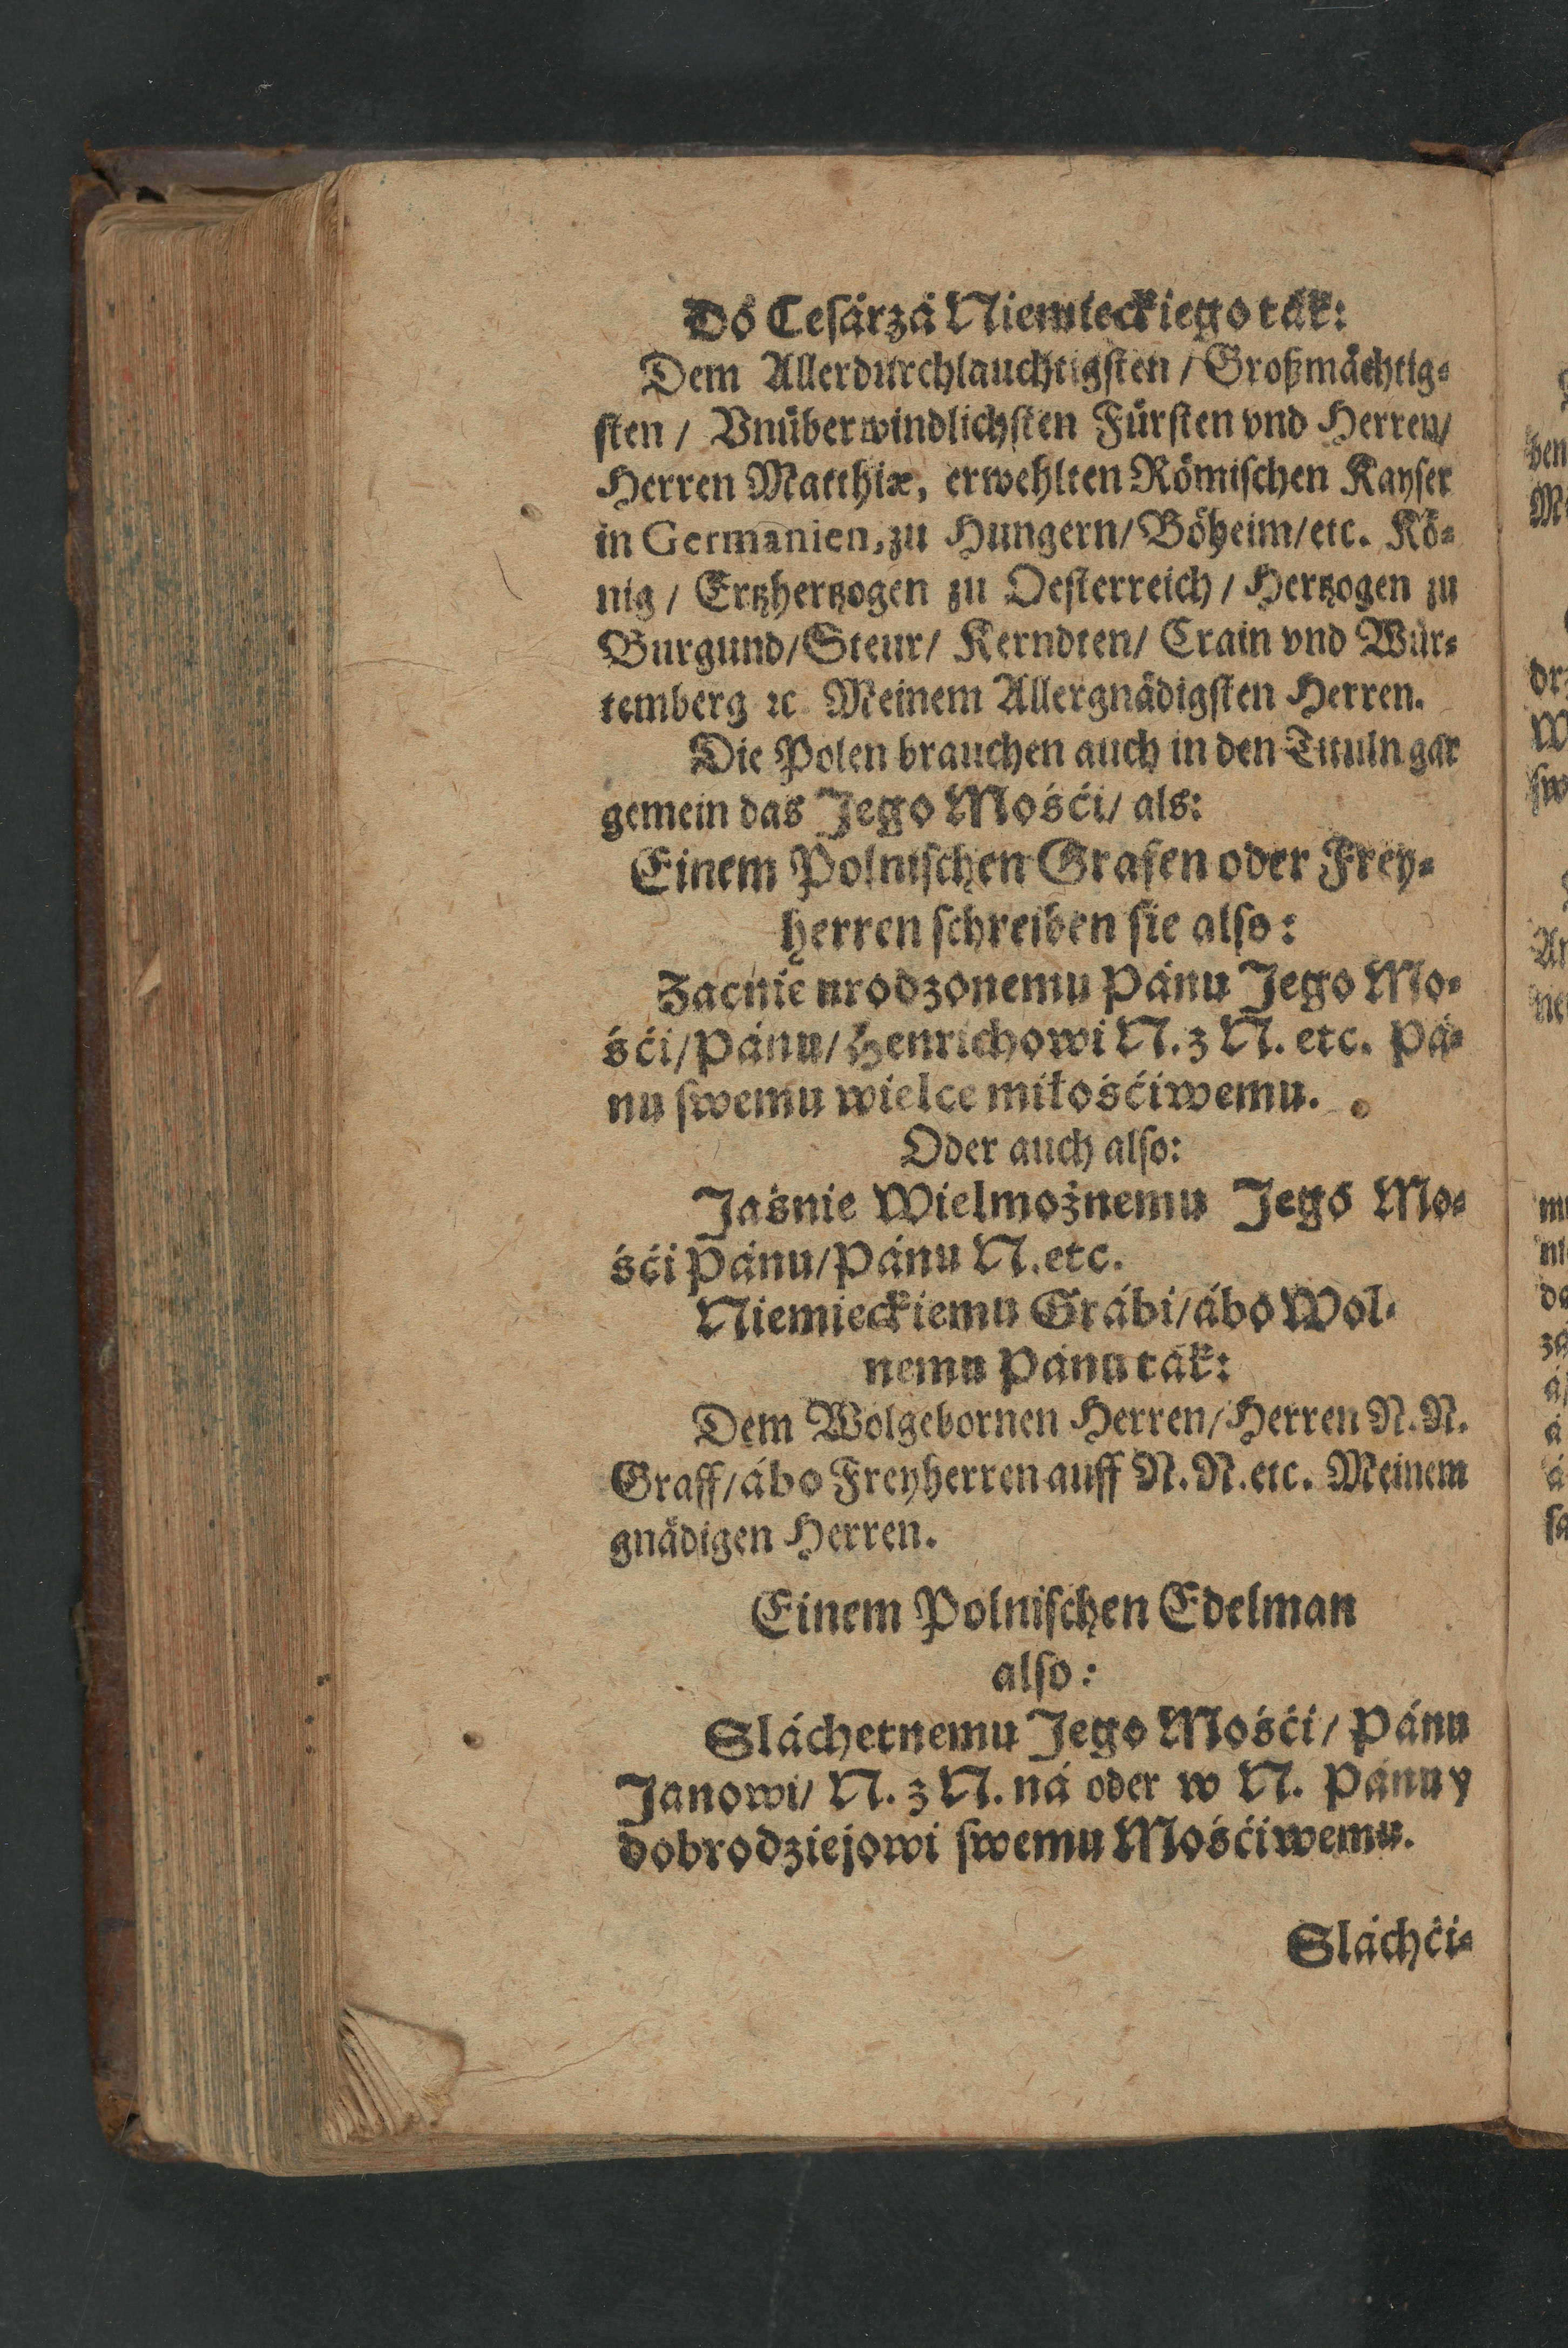 Dó Ceſárzá Niemieckiego ták:
Dem Allerdurchlauchtigſten / Großmächtig⸗
ſten / Vnüberwindlichſten Fürſten vnd Herren/
Herren Matthiæ, erwehlten Römiſchen Kayſer
in Germanien, zu Hungern/Böheim/etc. Kö⸗
nig / Ertzhertzogen zu Oeſterreich / Hertzogen zu
Burgund/Steur/ Kerndten/ Crain vnd Wür⸗
temberg ꝛc Meinem Allergnädigſten Herren.
Die Polen brauchen auch in den Tituln gar
gemein das Jego Mośći/ als:
Einem Polniſchen Grafen oder Frey⸗
herren ſchreiben ſie alſo:
Zacnie urodzonemu Pánu Jego Mo⸗
śći/Pánu/Henrichowi N. z N. etc. Pá⸗
nu ſwemu wielce miłośćiwemu.
Oder auch alſo:
Jaśnie Wielmożnemu Jego Mo⸗
śći Pánu/Pánu N.etc.
Niemieckiemu Grábi/ábo Wol⸗
nemu Pánu ták:
Dem Wolgebornen Herren/Herren N.N.
Graff/ábo Freyherren auff N.N.etc. Meinem
gnädigen Herren.
Einem Polniſchen Edelman
alſo:
Sláchetnemu Jego Mośći/ Pánu
Janowi/ N. z N. ná oder w N. Pánu y
dobrodziejowi ſwemu Mośćiwemu.
Sláchći⸗